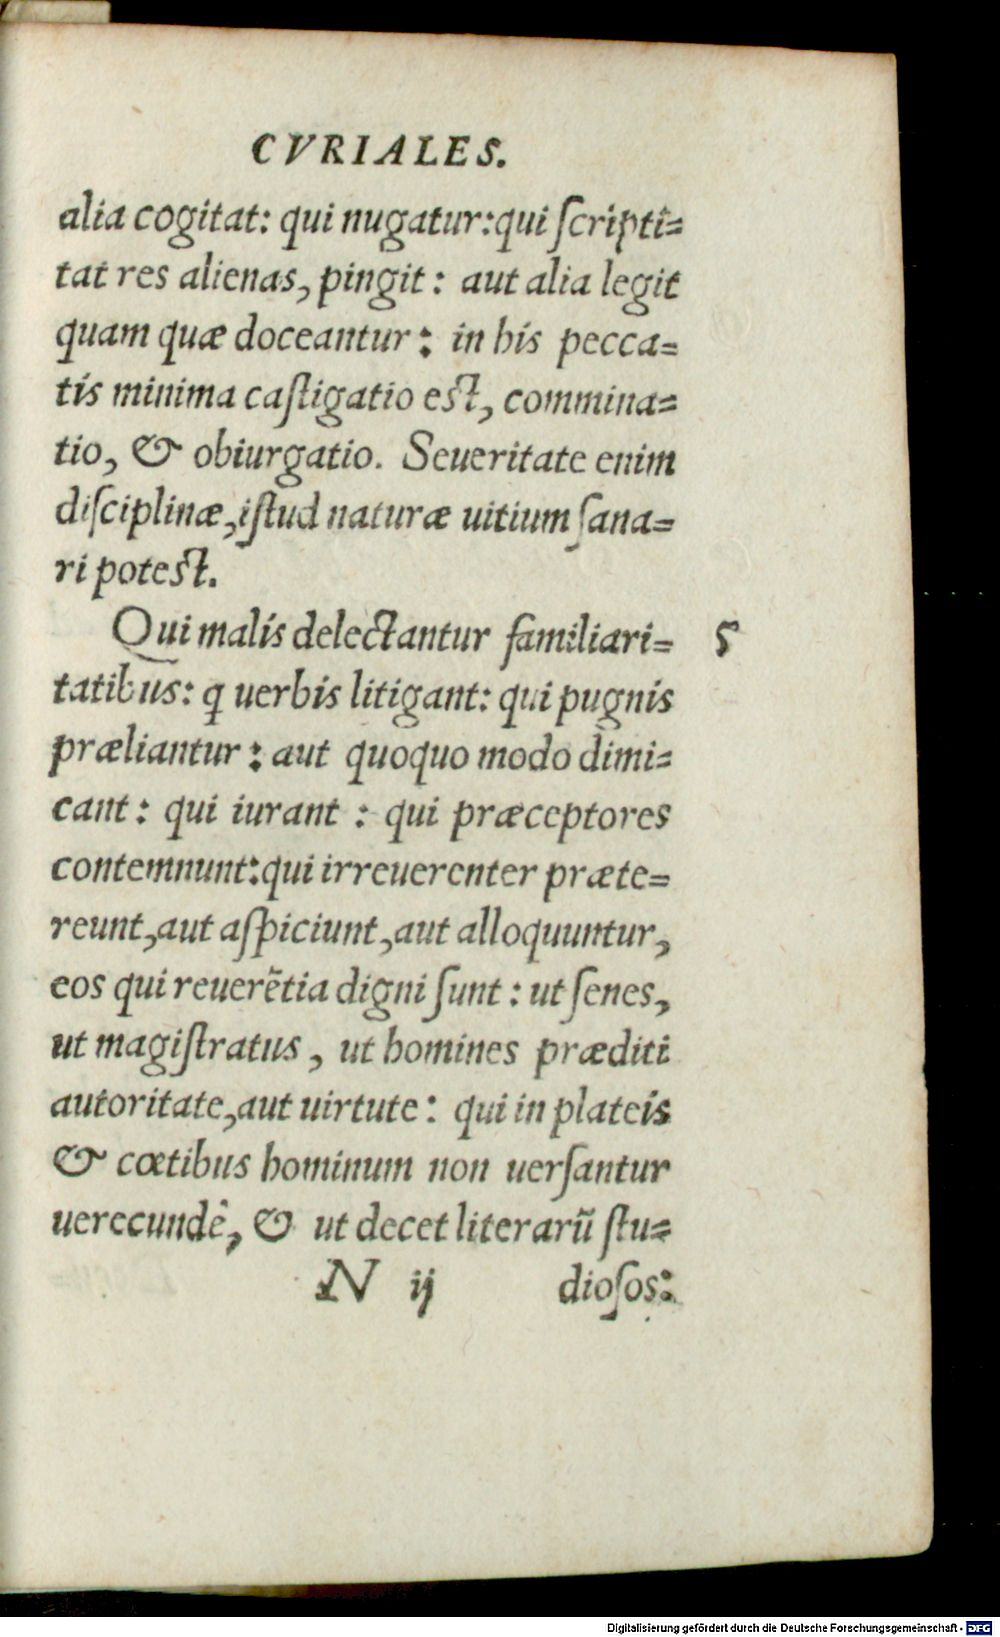 CVRIALES.
alia cogitat: qui nugatur:qui ſcripti=
tat res alienas, pingit: aut alia legit
quam quæ doceantur: in his pecca=
tis minima caſtigatio eſt, commina=
tio, & obiurgatio. Seueritate enim
diſciplinæ,iſtud naturæ uitium ſana=
ri poteſt.
Qui malis delectantur familiari= 5
tatibus: ꝗ uerbis litigant: qui pugnis
præliantur: aut quoquo modo dimi=
cant: qui iurant : qui præceptores
contemnunt:qui irreuerenter præte=
reunt,aut aſpiciunt,aut alloquuntur,
eos qui reuerẽtia digni ſunt: ut ſenes,
ut magiſtratus, ut homines præditi
autoritate,aut uirtute: qui in plateis
& cœtibus hominum non uerſantur
uerecundê, & ut decet literarũ ſtu=
N ij dioſos:
Digitalisierung gefördert durch die Deutsche Forschungsgemeinschaft - DFG